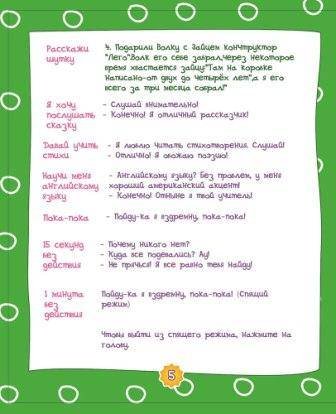 Расскажи шутку
4. Подарили Волку с Зайцем конструктор
"Лего". Волк его себе забрал, через некоторое
время хвастается зайцу "Там на коробке
написано-от двух до четырёх лет", а я его
всего за три месяца собрал!"
Я хочу послушать сказку
- Слушай внимательно!
- Конечно! Я отличный рассказчик!
Давай учить стихи
- Я люблю читать стихотворения. Слушай!
- Отлично! Я обожаю поэзию!
Научи меня английскому языку
- Английскому языку? Без проблем, у меня
хороший американский акцент!
- Конечно! Отныне я твой учитель!
Пока-пока
- Пойду-ка я вздремну, пока-пока!
15 секунд без действия
- Почему никого нет?
- Куда все подевались? Ау!
- Не прячься! Я все равно тебя найду!
1 минута без действия
Пойду-ка я вздремну, пока-пока! (Спящий
режим)
Чтобы выйти из спящего режима, нажмите на
голову.
5